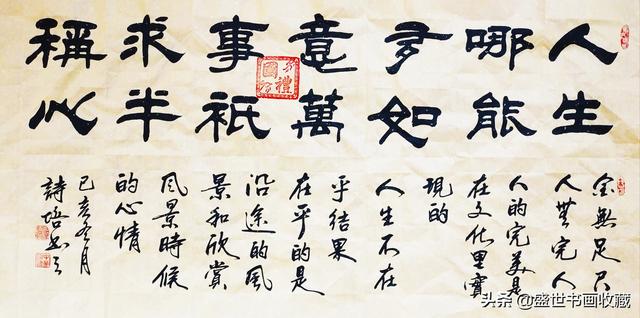 人生
哪能
多如
意萬
事祇
求半
稱心
金無足赤
人無完人
人的完美是
在文化里實
現的
人生不在
乎結果
在乎的是
沿途的風
景和欣賞
風景時候
的心情
己亥冬月
詩悟書
头条@盛世书画收藏